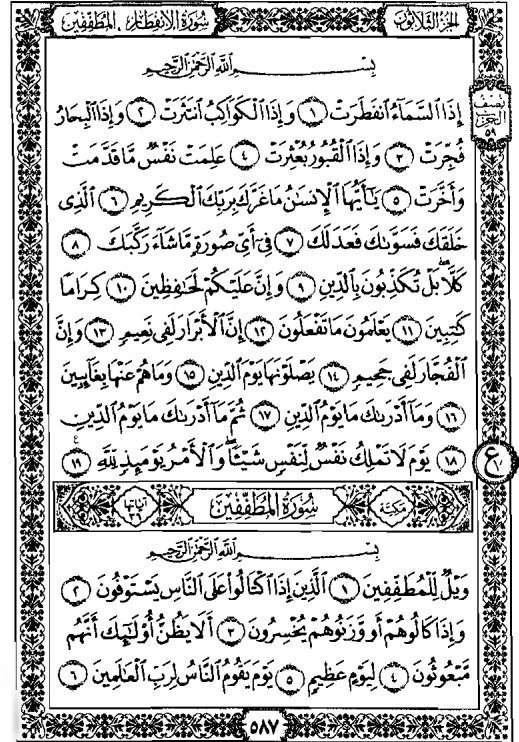 سُورَةُ الِانفِطَارِ ، المُطَفِّفِينَ
الجُزْءُ الثَّلَاثُونَ
بِسْمِ اللَّهِ الرَّحْمَٰنِ الرَّحِيمِ
نِصْفُ
الحِزْبُ
٥٩
إِذَا ٱلسَّمَآءُ ٱنفَطَرَتْ ١ وَإِذَا ٱلْكَوَاكِبُ ٱنتَثَرَتْ ٢ وَإِذَا ٱلْبِحَارُ
فُجِّرَتْ ٣ وَإِذَا ٱلْقُبُورُ بُعْثِرَتْ ٤ عَلِمَتْ نَفْسٌ مَّا قَدَّمَتْ
وَأَخَّرَتْ ٥ يَٰٓأَيُّهَا ٱلْإِنسَٰنُ مَا غَرَّكَ بِرَبِّكَ ٱلْكَرِيمِ ٦ ٱلَّذِى
خَلَقَكَ فَسَوَّىٰكَ فَعَدَلَكَ ٧ فِىٓ أَىِّ صُورَةٍ مَّا شَآءَ رَكَّبَكَ ٨
كَلَّا بَلْ تُكَذِّبُونَ بِٱلدِّينِ ٩ وَإِنَّ عَلَيْكُمْ لَحَٰفِظِينَ ١٠ كِرَامًا
كَٰتِبِينَ ١١ يَعْلَمُونَ مَا تَفْعَلُونَ ١٢ إِنَّ ٱلْأَبْرَارَ لَفِى نَعِيمٍ ١٣ وَإِنَّ
ٱلْفُجَّارَ لَفِى جَحِيمٍ ١٤ يَصْلَوْنَهَا يَوْمَ ٱلدِّينِ ١٥ وَمَا هُمْ عَنْهَا بِغَآئِبِينَ
١٦ وَمَآ أَدْرَىٰكَ مَا يَوْمُ ٱلدِّينِ ١٧ ثُمَّ مَآ أَدْرَىٰكَ مَا يَوْمُ ٱلدِّينِ
١٨ يَوْمَ لَا تَمْلِكُ نَفْسٌ لِّنَفْسٍ شَيْـًٔا وَٱلْأَمْرُ يَوْمَئِذٍ لِّلَّهِ ١٩
ع
مَكِّيَّة
سُورَةُ المُطَفِّفِينَ
آيَاتُهَا ٣٦
بِسْمِ اللَّهِ الرَّحْمَٰنِ الرَّحِيمِ
وَيْلٌ لِّلْمُطَفِّفِينَ ١ ٱلَّذِينَ إِذَا ٱكْتَالُوا۟ عَلَى ٱلنَّاسِ يَسْتَوْفُونَ ٢
وَإِذَا كَالُوهُمْ أَو وَّزَنُوهُمْ يُخْسِرُونَ ٣ أَلَا يَظُنُّ أُو۟لَٰٓئِكَ أَنَّهُم
مَّبْعُوثُونَ ٤ لِيَوْمٍ عَظِيمٍ ٥ يَوْمَ يَقُومُ ٱلنَّاسُ لِرَبِّ ٱلْعَٰلَمِينَ ٦
٥٨٧